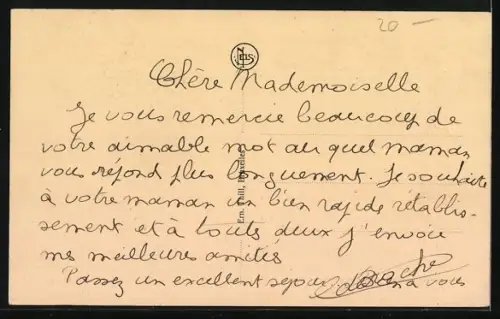 20 -
Chère Mademoiselle
Je vous remercie beaucoup de
votre aimable mot au quel maman
vous répond plus longuement. Je souhaite
à votre maman un bien rapide rétablis-
sement et à toute deux j'envoie
mes meilleures amitiés
Passez un excellent séjour à vous
Ern. Thill, Bruxelles